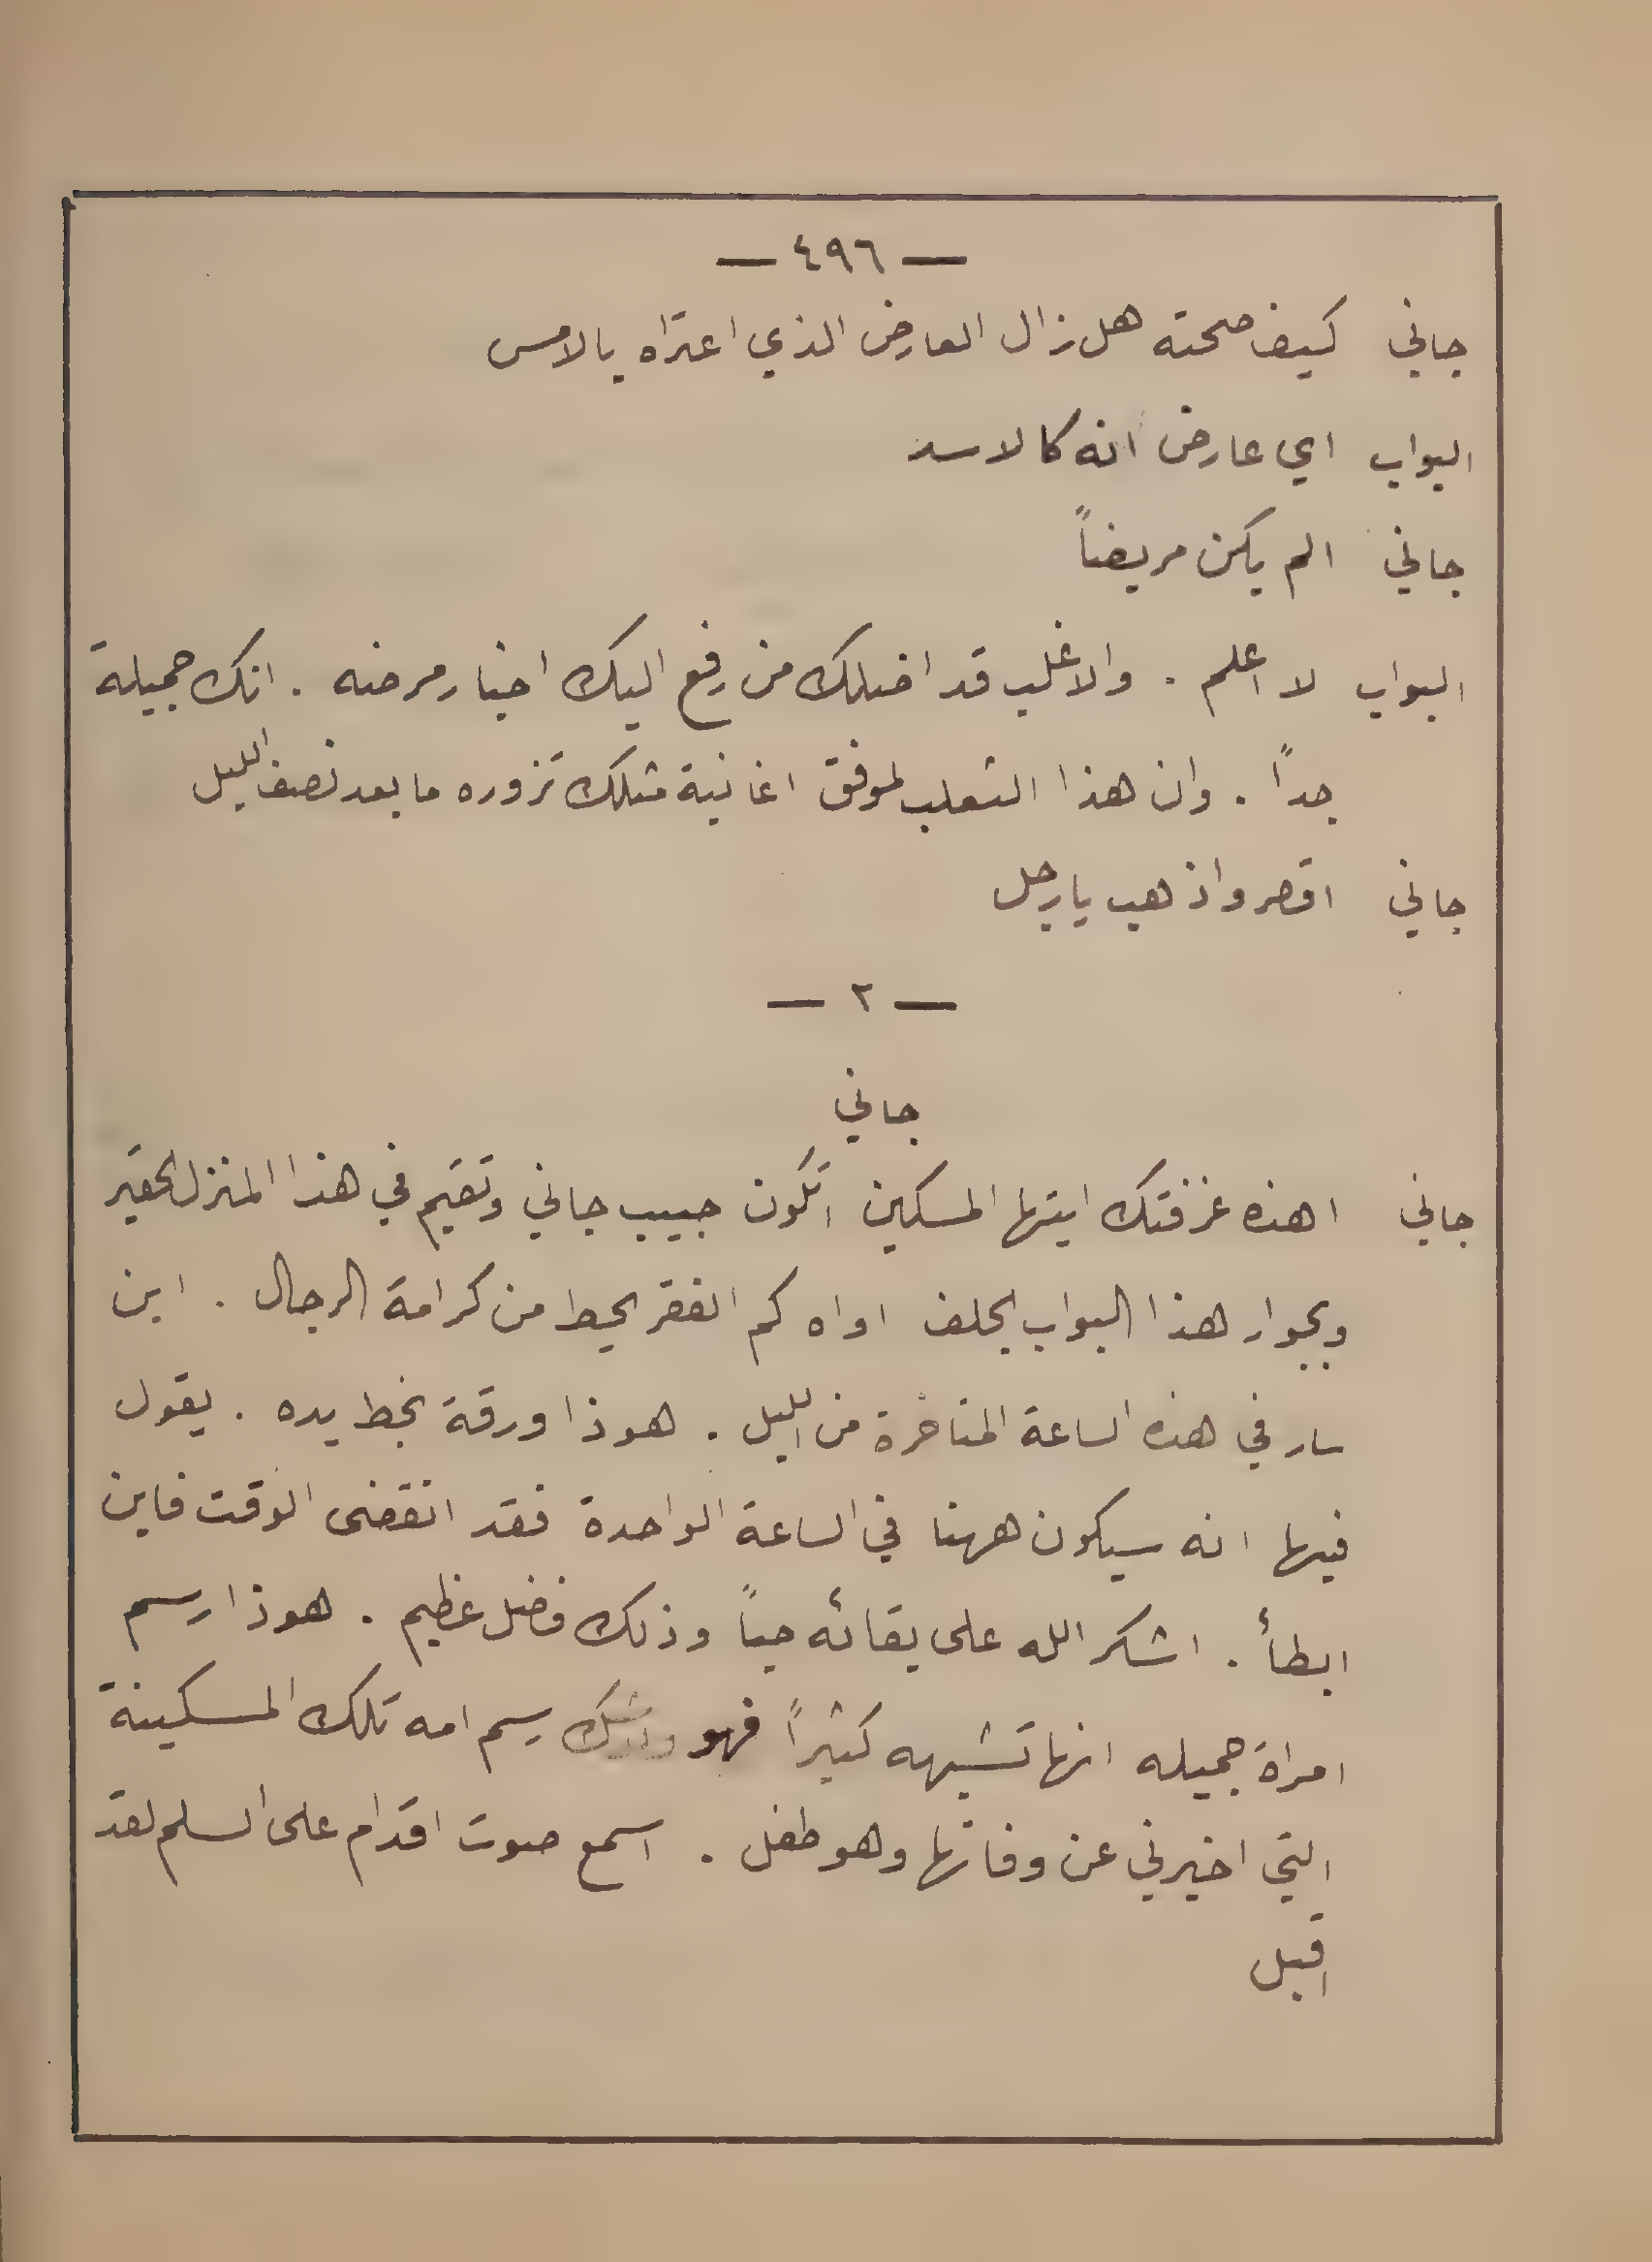 — ٤٩٦ —
جاني كيف صحته هل زال العارض الذي اعتراه بالامس
البواب اي عارض انه كالاسد
جاني الم يكن مريضاً
البواب لا اعلم . والاغلب قد اضلك من رفع اليك اخبار مرضه . انك جميلة
جداً . وان هذا الثعلب لموفق اغانية مثلك تزوره ما بعد نصف الليل
جاني اقصر واذهب يارجل
— ٢ —
جاني
جاني اهذه غرفتك ايتها المسكين اتكون حبيب جاني وتقيم في هذا المنزل الحقير
وبجوار هذا البواب الجلف اواه كم الفقر يحط من كرامة الرجال . اين
سار في هذه الساعة المتاخرة من الليل . هوذا ورقة بخط يده . يقول
فيها انه سيكون ههنا في الساعة الواحدة فقد انقضى الوقت فاين
ابطأ . اشكر الله على بقائه حياً وذلك فضل عظيم . هوذا رسم
امراة جميله انها تشبهه كثيراً فهو رسم امه تلك المسكينة
التي اخبرني عن وفاتها وهو طفل . اسمع صوت اقدام على السلم لقد
اقبل